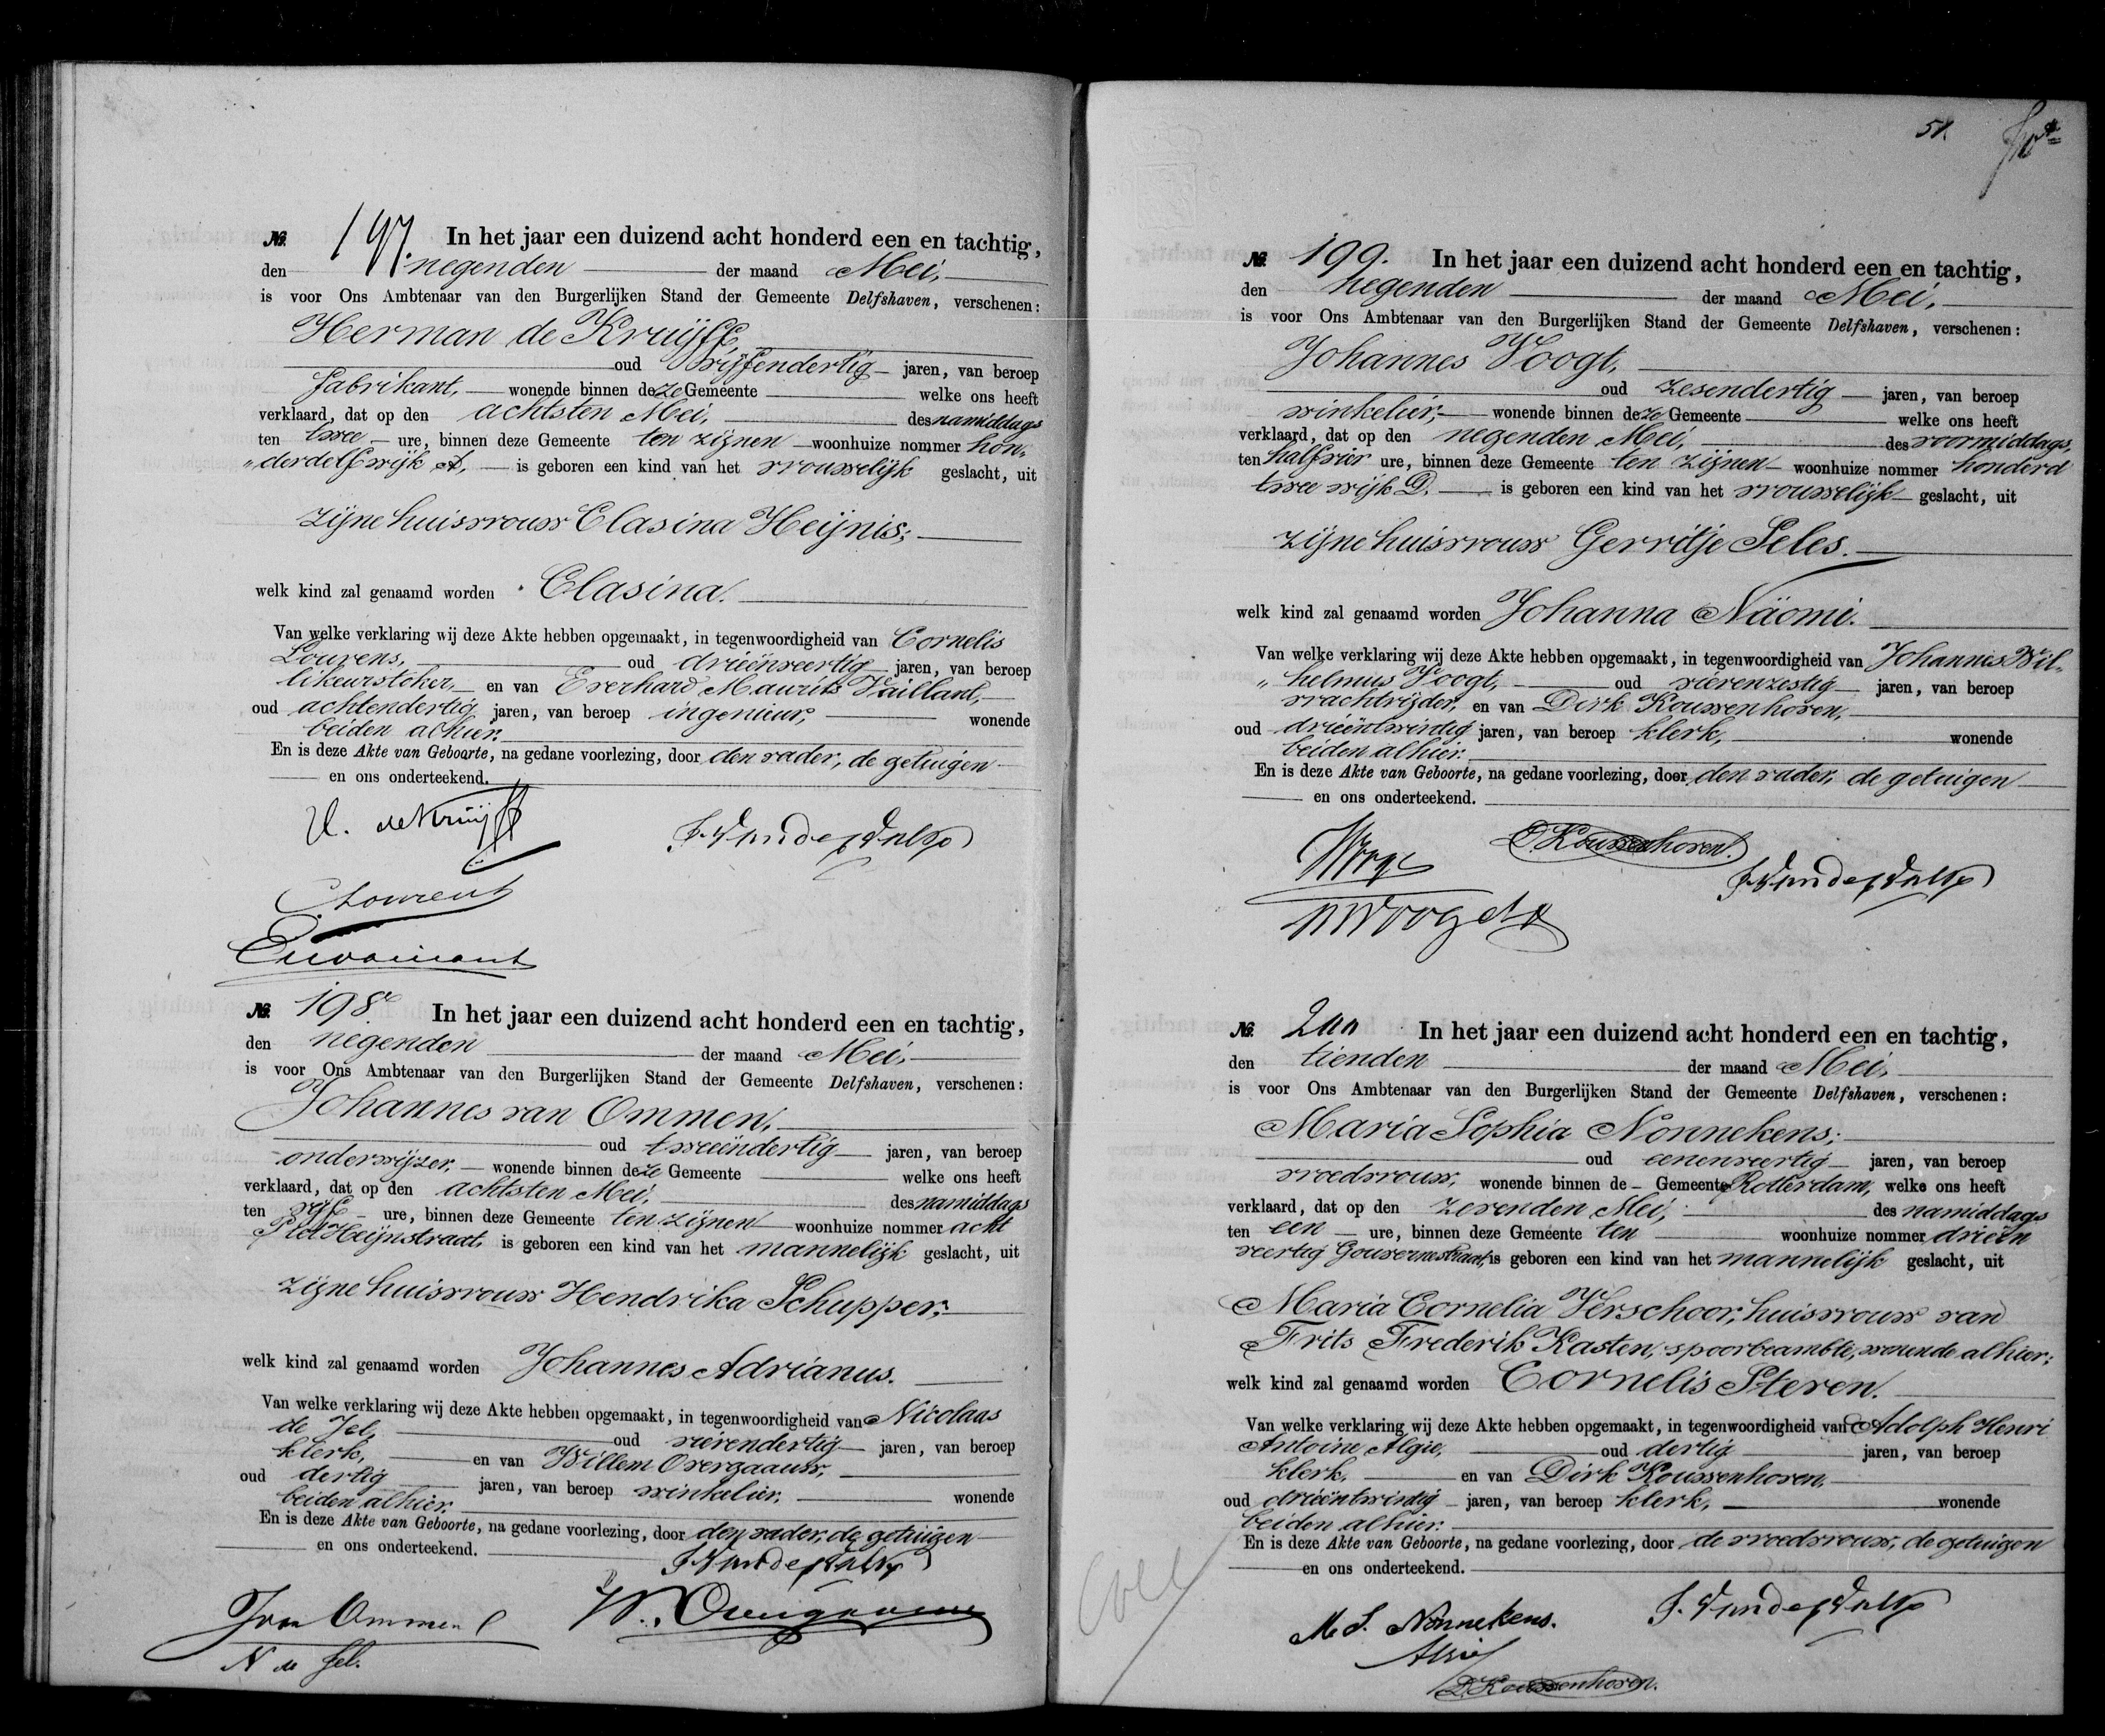 No. 197. In het jaar een duizend acht honderd een en tachtig,
den negenden der maand Mei,
is voor Ons Ambtenaar van den Burgerlijken Stand der Gemeente Delfshaven, verschenen:
Herman de Kruijff,
oud vijfendertig jaren, van beroep
fabrikant, wonende binnen deze Gemeente welke ons heeft
verklaard, dat op den achtsten Mei, des namiddags
ten twee ure, binnen deze Gemeente ten zijnen woonhuize nommer hon„
„derdelf wijk A, is geboren een kind van het vrouwelijk geslacht, uit
zijne huisvrouw Clasina Heijnis;
welk kind zal genaamd worden Clasina.
Van welke verklaring wij deze Akte hebben opgemaakt, in tegenwoordigheid van Cornelis
Lourens, oud drieënveertig jaren, van beroep
likeurstoker, en van Everhard Maurits Vaillant,
oud achtendertig jaren, van beroep ingenieur, wonende
beiden alhier.
En is deze Akte van Geboorte, na gedane voorlezing, door den vader, de getuigen
en ons onderteekend.
H. de Kruijff
C Lourens
No. 198. In het jaar een duizend acht honderd een en tachtig,
den negenden der maand Mei,
is voor Ons Ambtenaar van den Burgerlijken Stand der Gemeente Delfshaven, verschenen:
Johannes van Ommen,
oud tweeëndertig jaren, van beroep
onderwijzer, wonende binnen deze Gemeente welke ons heeft
verklaard, dat op den achtsten Mei, des namiddags
ten vijf ure, binnen deze Gemeente ten zijnen woonhuize nommer acht
Piet Heijnstraat, is geboren een kind van het mannelijk geslacht, uit
zijne huisvrouw Hendrika Schupper;
welk kind zal genaamd worden Johannes Adrianus.
Van welke verklaring wij deze Akte hebben opgemaakt, in tegenwoordigheid van Nicolaas
de Jel, oud vierendertig jaren, van beroep
klerk, en van Willem Overgaauw,
oud dertig jaren, van beroep winkelier, wonende
beiden alhier.
En is deze Akte van Geboorte, na gedane voorlezing, door den vader, de getuigen
en ons onderteekend.
J van Ommen
W. Overgaauw
N de Jel.
51.
No. 199. In het jaar een duizend acht honderd een en tachtig,
den negenden der maand Mei,
is voor Ons Ambtenaar van den Burgerlijken Stand der Gemeente Delfshaven, verschenen:
Johannes Voogt,
oud zesendertig jaren, van beroep
winkelier, wonende binnen deze Gemeente welke ons heeft
verklaard, dat op den negenden Mei, des voormiddags,
ten half vier ure, binnen deze Gemeente ten zijnen woonhuize nommer honderd
twee wijk D. is geboren een kind van het vrouwelijk geslacht, uit
zijne huisvrouw Gerritje Seles.
welk kind zal genaamd worden Johanna Näomi.
Van welke verklaring wij deze Akte hebben opgemaakt, in tegenwoordigheid van Johannes Wil„
„helmus Voogt, oud vierenzestig jaren, van beroep
vrachtrijder, en van Dirk Kouwenhoven,
oud drieëntwintig jaren, van beroep klerk, wonende
beiden alhier.
En is deze Akte van Geboorte, na gedane voorlezing, door den vader, de getuigen
en ons onderteekend.
J Voogt
D. Kouwenhoven.
No. 200 In het jaar een duizend acht honderd een en tachtig,
den tienden der maand Mei,
is voor Ons Ambtenaar van den Burgerlijken Stand der Gemeente Delfshaven, verschenen:
Maria Sophia Nonnekens;
oud eenenveertig jaren, van beroep
vroedvrouw, wonende binnen de Gemeente Rotterdam, welke ons heeft
verklaard, dat op den zevenden Mei, des namiddags
ten een ure, binnen deze Gemeente ten woonhuize nommer drieën
veertig Gouvernestraat, is geboren een kind van het mannelijk geslacht, uit
Maria Cornelia Verschoor, huisvrouw van
Frits Frederik Kasten, spoorbeambte, wonende alhier;
welk kind zal genaamd worden Cornelis Steven.
Van welke verklaring wij deze Akte hebben opgemaakt, in tegenwoordigheid van Adolph Henri
Antoine Algie, oud dertig jaren, van beroep
klerk, en van Dirk Kouwenhoven,
oud drieëntwintig jaren, van beroep klerk, wonende
beiden alhier.
En is deze Akte van Geboorte, na gedane voorlezing, door de vroedvrouw, de getuigen
en ons onderteekend.
M. S. Nonnekens.
Algie
D. Kouwenhoven.